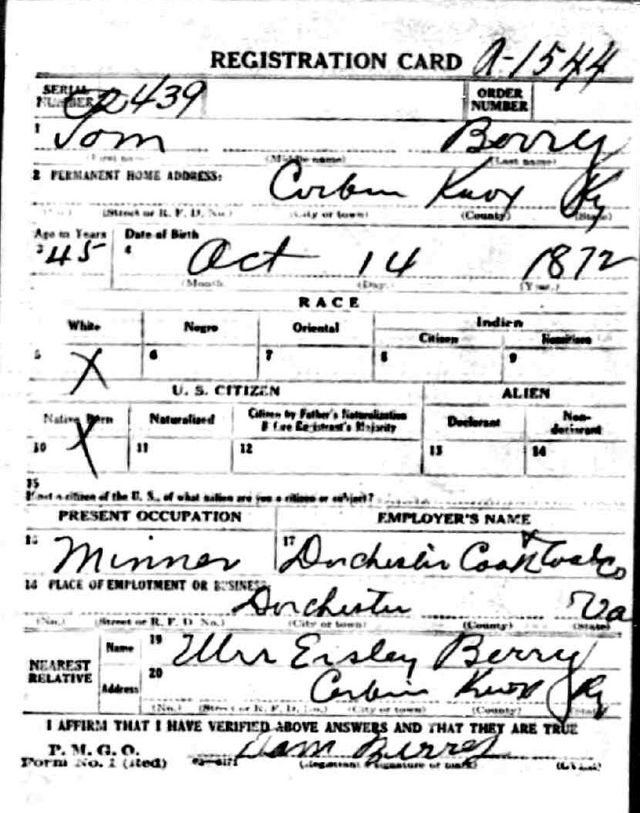 REGISTRATION CARD A-1544
SERIAL NUMBER 439 ORDER NUMBER
1 Tom Berry
(First name) (Middle name) (Last name)
2 PERMANENT HOME ADDRESS:
Corbin Knox Ky
(No.) (Street or R. F. D. No.) (City or town) (County) (State)
Age in Years Date of Birth
3 45 4 Oct 14 1872
(Month) (Day) (Year)
RACE
White Negro Oriental Indian
Citizen Noncitizen
5 X 6 7 8 9
U. S. CITIZEN ALIEN
Native Born Naturalized Citizen by Father's Naturalization Before Registrant's Majority Declarant Non-declarant
10 X 11 12 13 14
15
If not a citizen of the U. S., of what nation are you a citizen or subject?
PRESENT OCCUPATION EMPLOYER'S NAME
16 Minner 17 Dorchester Coak & Coal Co
18 PLACE OF EMPLOYMENT OR BUSINESS:
Dorchester Va
(No.) (Street or R. F. D. No.) (City or town) (County) (State)
NEAREST RELATIVE Name 19 Mrs Ersley Berry
Address 20 Corbin Knox Ky
(No.) (Street or R. F. D. No.) (City or town) (County) (State)
I AFFIRM THAT I HAVE VERIFIED ABOVE ANSWERS AND THAT THEY ARE TRUE
P. M. G. O.
Form No. 1 (Red) Tom Berrey
(Registrant's signature or mark) (OVER)